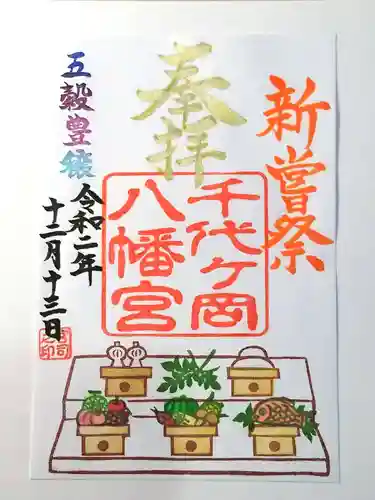 新嘗祭
奉拝
千代ケ岡
八幡宮
五穀豊穣
令和二年
十二月十三日
宮司之印